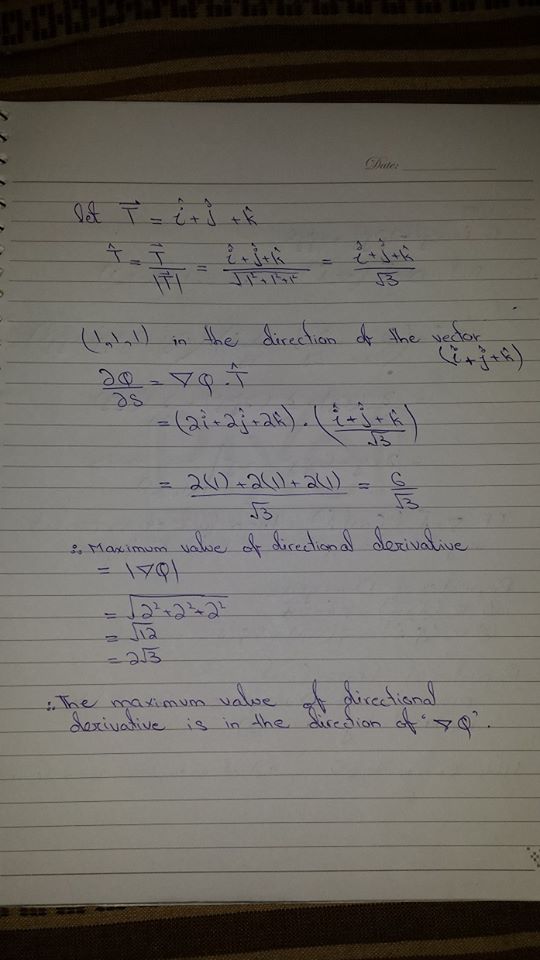 Date:
let T⃗ = î + ĵ + k̂
T̂ = T⃗/|T⃗| = (î + ĵ + k̂)/√(1²+1²+1²) = (î + ĵ + k̂)/√3
(1,1,1) in the direction of the vector
(î + ĵ + k̂)
∂Q/∂S = ∇Q · T̂
= (2î+2ĵ+2k̂) · ((î + ĵ + k̂)/√3)
= (2(1) + 2(1) + 2(1))/√3 = 6/√3
∴ Maximum value of directional derivative
= |∇Q|
= √(2²+2²+2²)
= √12
= 2√3
∴ The maximum value of directional
derivative is in the direction of "∇Q".